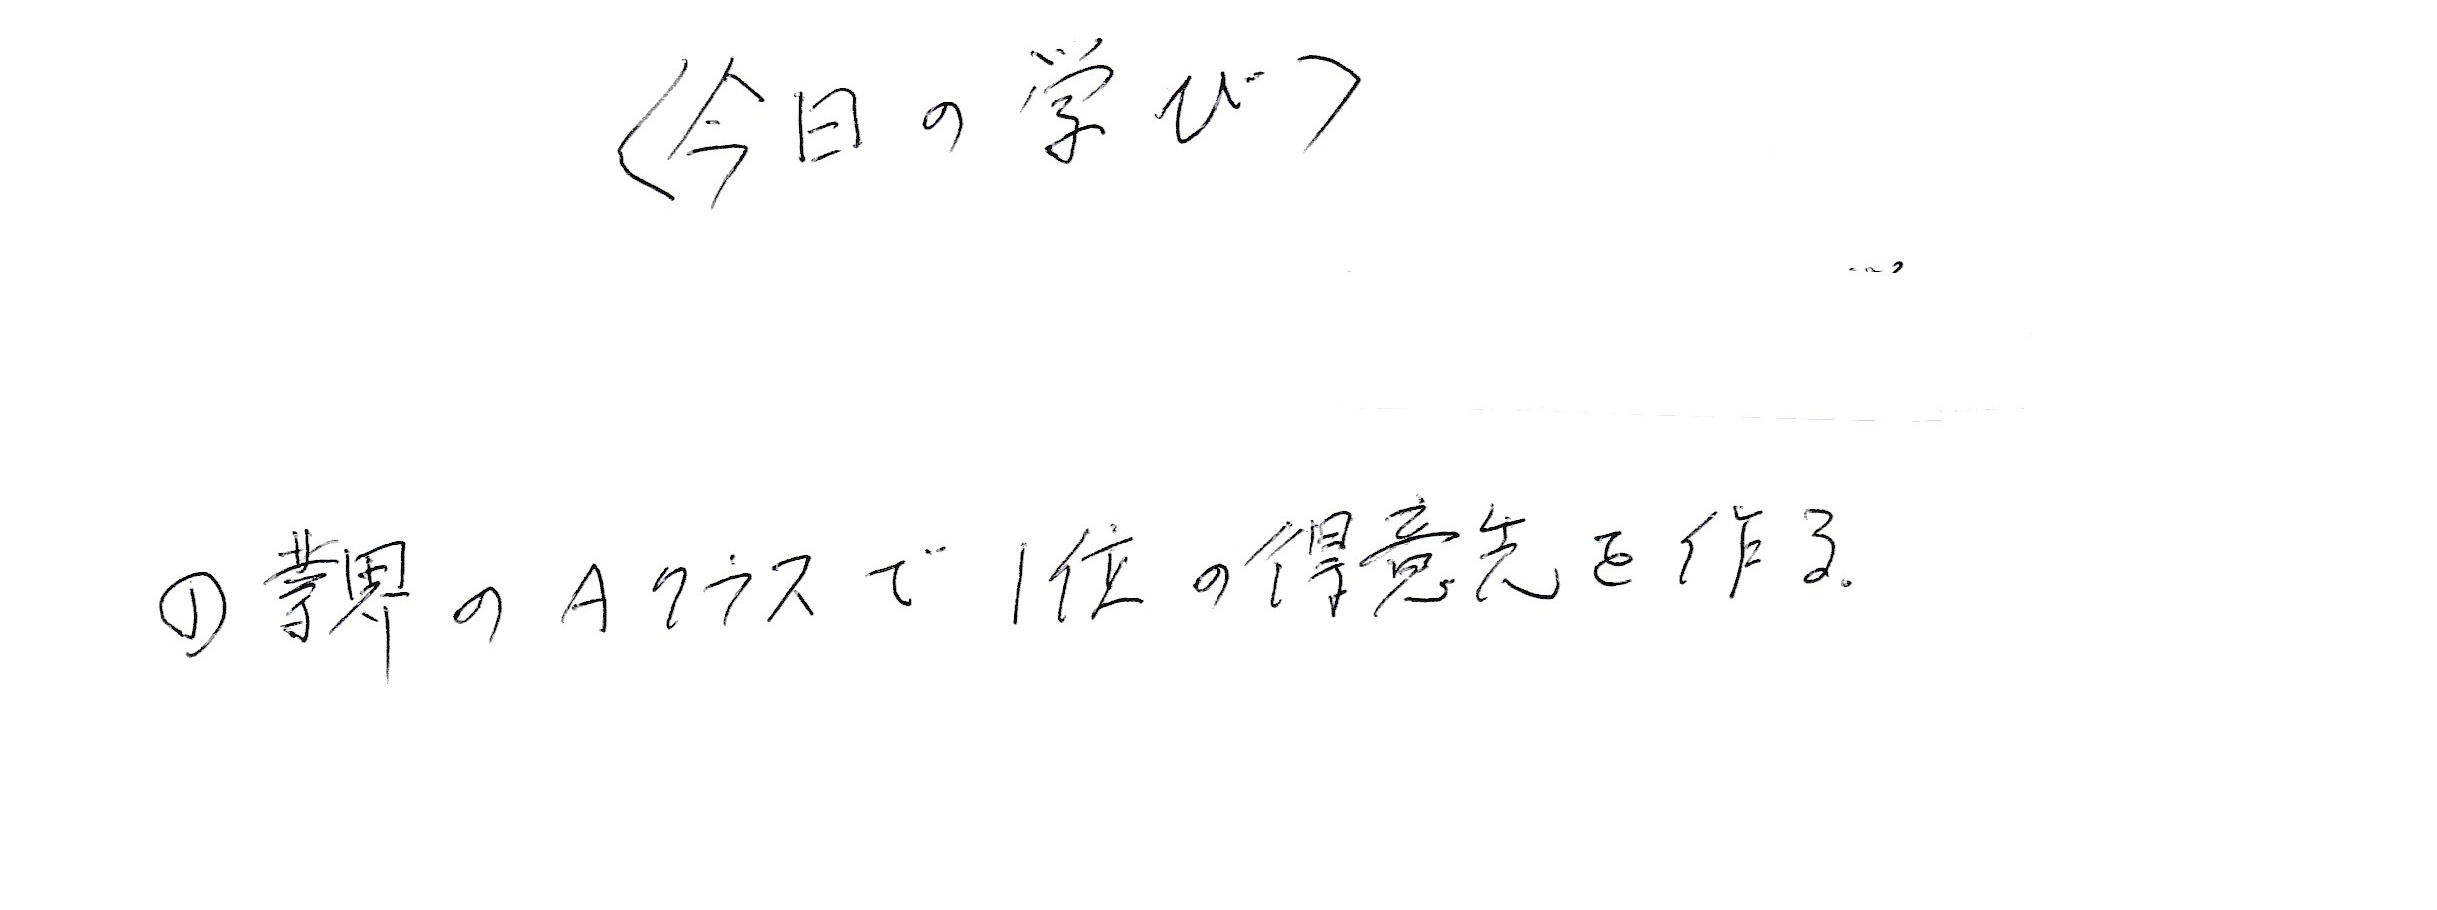 〈今日の学び〉
① 業界のAクラスで1位の得意先を作る。